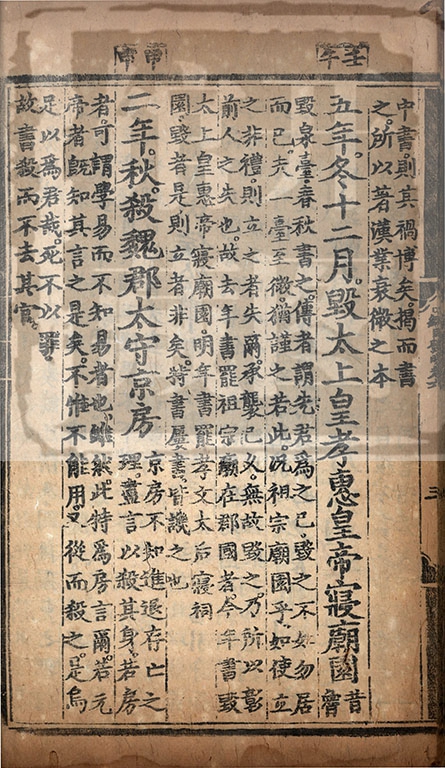 壬午
中書則其禍博矣揭而書
之所以著漢業衰微之本
五年冬十二月毀太上皇孝惠皇帝寢廟園昔魯
毀泉臺春秋書之傳者謂先君爲之已毀之不如勿居
而已夫一臺至微猶謹之若此況祖宗廟園乎如使立
之非禮則立之者失爾承襲已久無故毀之乃所以彰
前人之失也故去年書罷祖宗廟在郡國者今年書毀
太上皇惠帝寢廟園明年書罷孝文太后寢祠
園毀者是則立者非矣特書屢書皆譏之也
甲申
二年秋殺魏郡太守京房京房不知進退存亡之
理盡言以殺其身若房
者可謂學易而不知易者也雖然此特爲房言爾若元
帝者既知其言之是矣不惟不能用又從而殺之是烏
足以爲君哉死不以罪
故書殺而不去其官